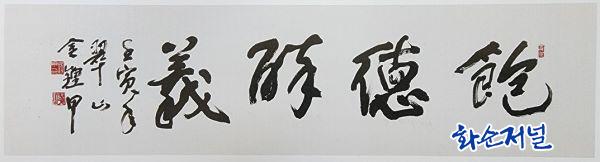 飽德醉義
壬寅年
翠山
金甲
화순저널